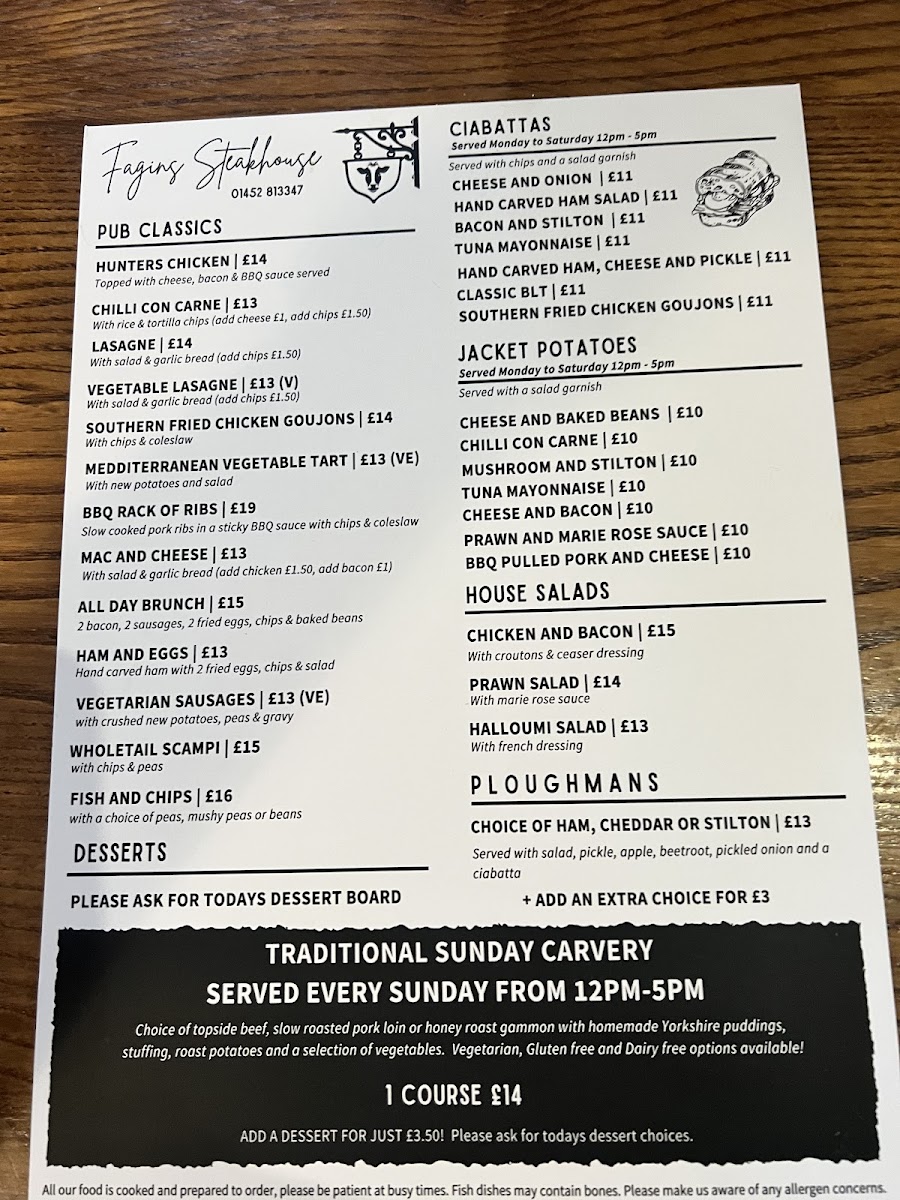 Fagins Steakhouse
01452 813347
PUB CLASSICS
HUNTERS CHICKEN | £14
Topped with cheese, bacon & BBQ sauce served
CHILLI CON CARNE | £13
With rice & tortilla chips (add cheese £1, add chips £1.50)
LASAGNE | £14
With salad & garlic bread (add chips £1.50)
VEGETABLE LASAGNE | £13 (V)
With salad & garlic bread (add chips £1.50)
SOUTHERN FRIED CHICKEN GOUJONS | £14
With chips & coleslaw
MEDDITERRANEAN VEGETABLE TART | £13 (VE)
With new potatoes and salad
BBQ RACK OF RIBS | £19
Slow cooked pork ribs in a sticky BBQ sauce with chips & coleslaw
MAC AND CHEESE | £13
With salad & garlic bread (add chicken £1.50, add bacon £1)
ALL DAY BRUNCH | £15
2 bacon, 2 sausages, 2 fried eggs, chips & baked beans
HAM AND EGGS | £13
Hand carved ham with 2 fried eggs, chips & salad
VEGETARIAN SAUSAGES | £13 (VE)
with crushed new potatoes, peas & gravy
WHOLETAIL SCAMPI | £15
with chips & peas
FISH AND CHIPS | £16
with a choice of peas, mushy peas or beans
DESSERTS
PLEASE ASK FOR TODAYS DESSERT BOARD
CIABATTAS
Served Monday to Saturday 12pm - 5pm
Served with chips and a salad garnish
CHEESE AND ONION | £11
HAND CARVED HAM SALAD | £11
BACON AND STILTON | £11
TUNA MAYONNAISE | £11
HAND CARVED HAM, CHEESE AND PICKLE | £11
CLASSIC BLT | £11
SOUTHERN FRIED CHICKEN GOUJONS | £11
JACKET POTATOES
Served Monday to Saturday 12pm - 5pm
Served with a salad garnish
CHEESE AND BAKED BEANS | £10
CHILLI CON CARNE | £10
MUSHROOM AND STILTON | £10
TUNA MAYONNAISE | £10
CHEESE AND BACON | £10
PRAWN AND MARIE ROSE SAUCE | £10
BBQ PULLED PORK AND CHEESE | £10
HOUSE SALADS
CHICKEN AND BACON | £15
With croutons & ceaser dressing
PRAWN SALAD | £14
With marie rose sauce
HALLOUMI SALAD | £13
With french dressing
PLOUGHMANS
CHOICE OF HAM, CHEDDAR OR STILTON | £13
Served with salad, pickle, apple, beetroot, pickled onion and a
ciabatta
+ ADD AN EXTRA CHOICE FOR £3
TRADITIONAL SUNDAY CARVERY
SERVED EVERY SUNDAY FROM 12PM-5PM
Choice of topside beef, slow roasted pork loin or honey roast gammon with homemade Yorkshire puddings,
stuffing, roast potatoes and a selection of vegetables. Vegetarian, Gluten free and Dairy free options available!
1 COURSE £14
ADD A DESSERT FOR JUST £3.50! Please ask for todays dessert choices.
All our food is cooked and prepared to order, please be patient at busy times. Fish dishes may contain bones. Please make us aware of any allergen concerns.